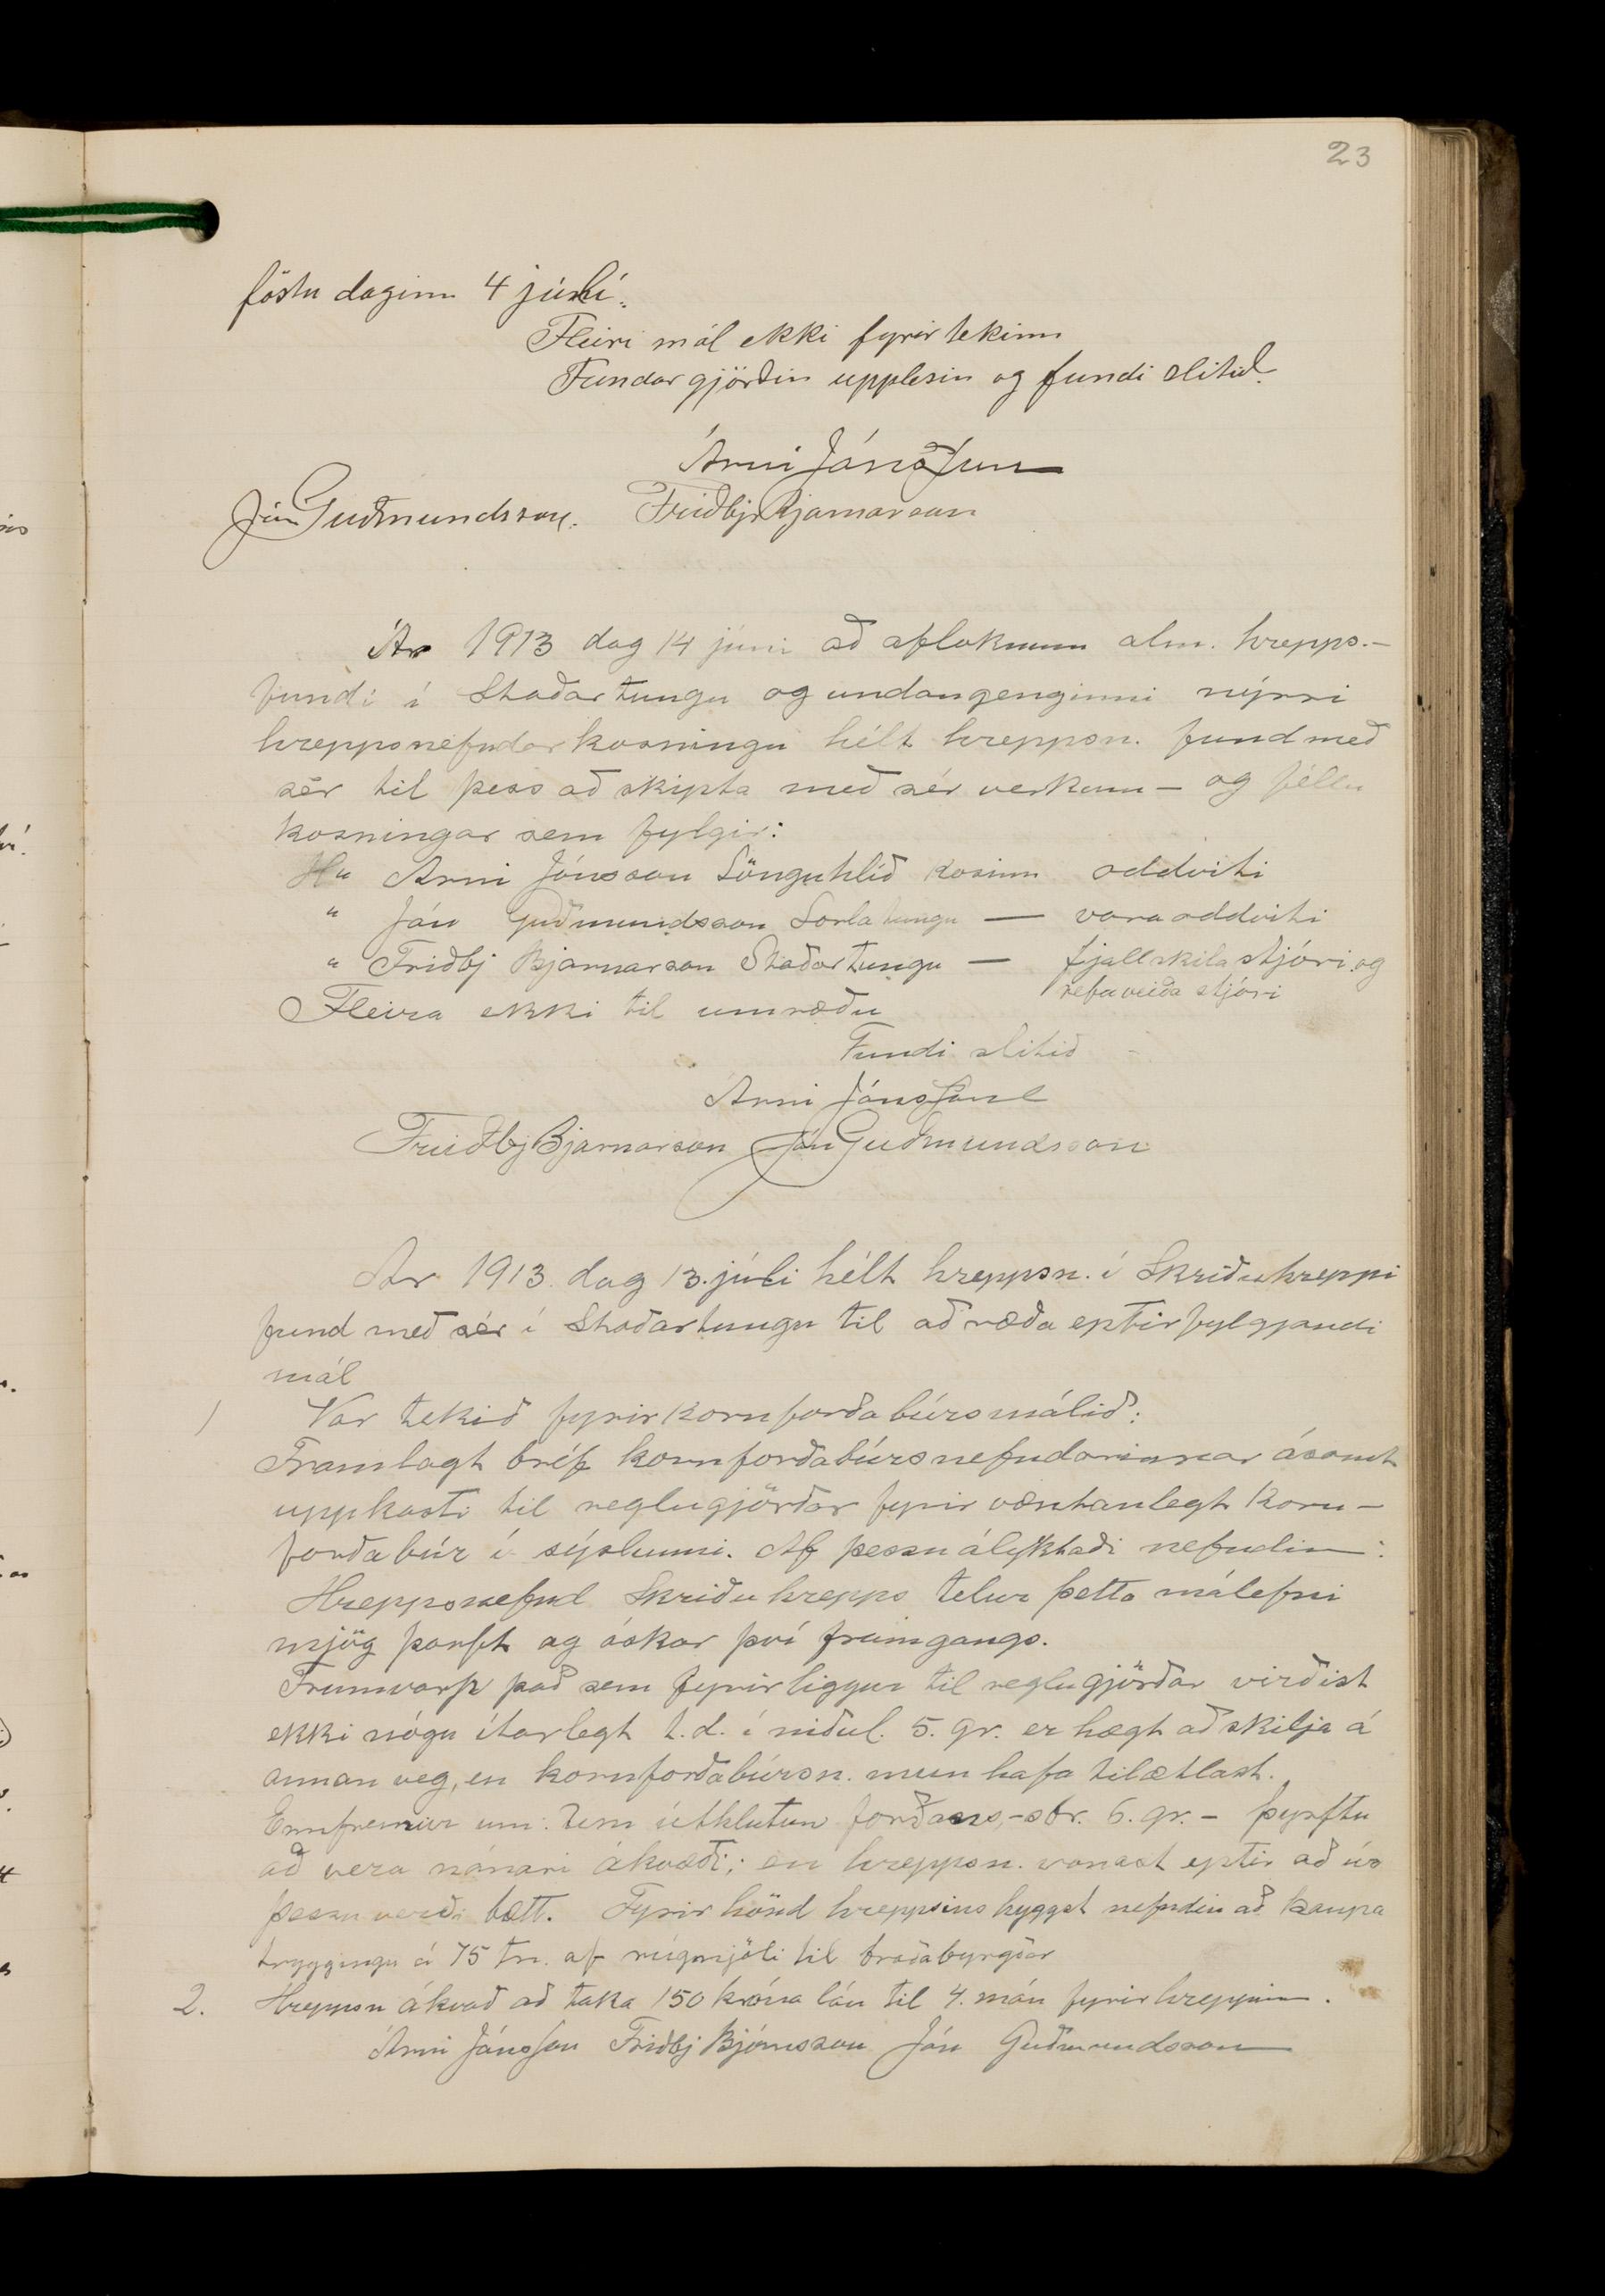 23
föstu daginn 4 júlí.
Fleiri mál ekki fyrir tekinn
Fundar gjörðin upplesin og fundi slitið.
Árni Jónsson
Jón Guðmundsson. Friðbj Bjarnarson
Ár 1913 dag 14 júni að afloknum alm. hrepps.-
fundi í Staðartungu og undangenginni nýrri
hreppsnefndarkosningu hélt hreppsn. fund með
sér til þess að skipta með sér verkum - og féllu
kosningar sem fylgir:
Hr Arni Jónsson Lönguhlíð kosinn oddviti
" Jón Guðmundsson Sörlatungu — varaoddviti
" Friðbj Bjarnarson Staðartungu — fjallskilastjóri og
refaveiða stjóri
Fleira ekki til umræðu
Fundi slitið -
Arni Jónsson
Friðbj Bjarnarson Jón Guðmundsson
Ar 1913. dag 13. júli hélt hreppsn. í Skriðuhreppi
fund með sér í Staðartungu til að ræða eptirfylgjandi
mál
1 Var tekið fyrir kornforðabúrsmálið:
Framlagt bréf kornforðabúrsnefndarinnar ásamt
uppkasti til reglugjörðar fyrir væntanlegt korn-
forðabúr í sýslunni. Af þessu ályktaði nefndin:
Hreppsnefnd Skriðuhrepps telur þetta málefni
mjög þarft og óskar því framgangs.
Frumvarp það sem fyrirliggur til reglugjörðar virðist
ekki nógu ítarlegt t.d. í niðul. 5. gr. er hægt að skilja á
annan veg, en kornforðabúrsn. mun hafa tilætlast.
Ennfremur um: Um úthlutun forðans, - sbr. 6. gr. - þyrftu
að vera nánari ákvæði; en hreppsn. vonast eptir að úr
þessu verði bætt. Fyrir hönd hreppsins hyggst nefndin að kaupa
tryggingu á 75 tn. af rúgmjöli til bráðabyrgðar
2. Hreppsn ákvað að taka 150 króna lán til 4. mán fyrir hreppinn.
Árni Jónsson Friðbj Björnsson Jón Guðmundsson